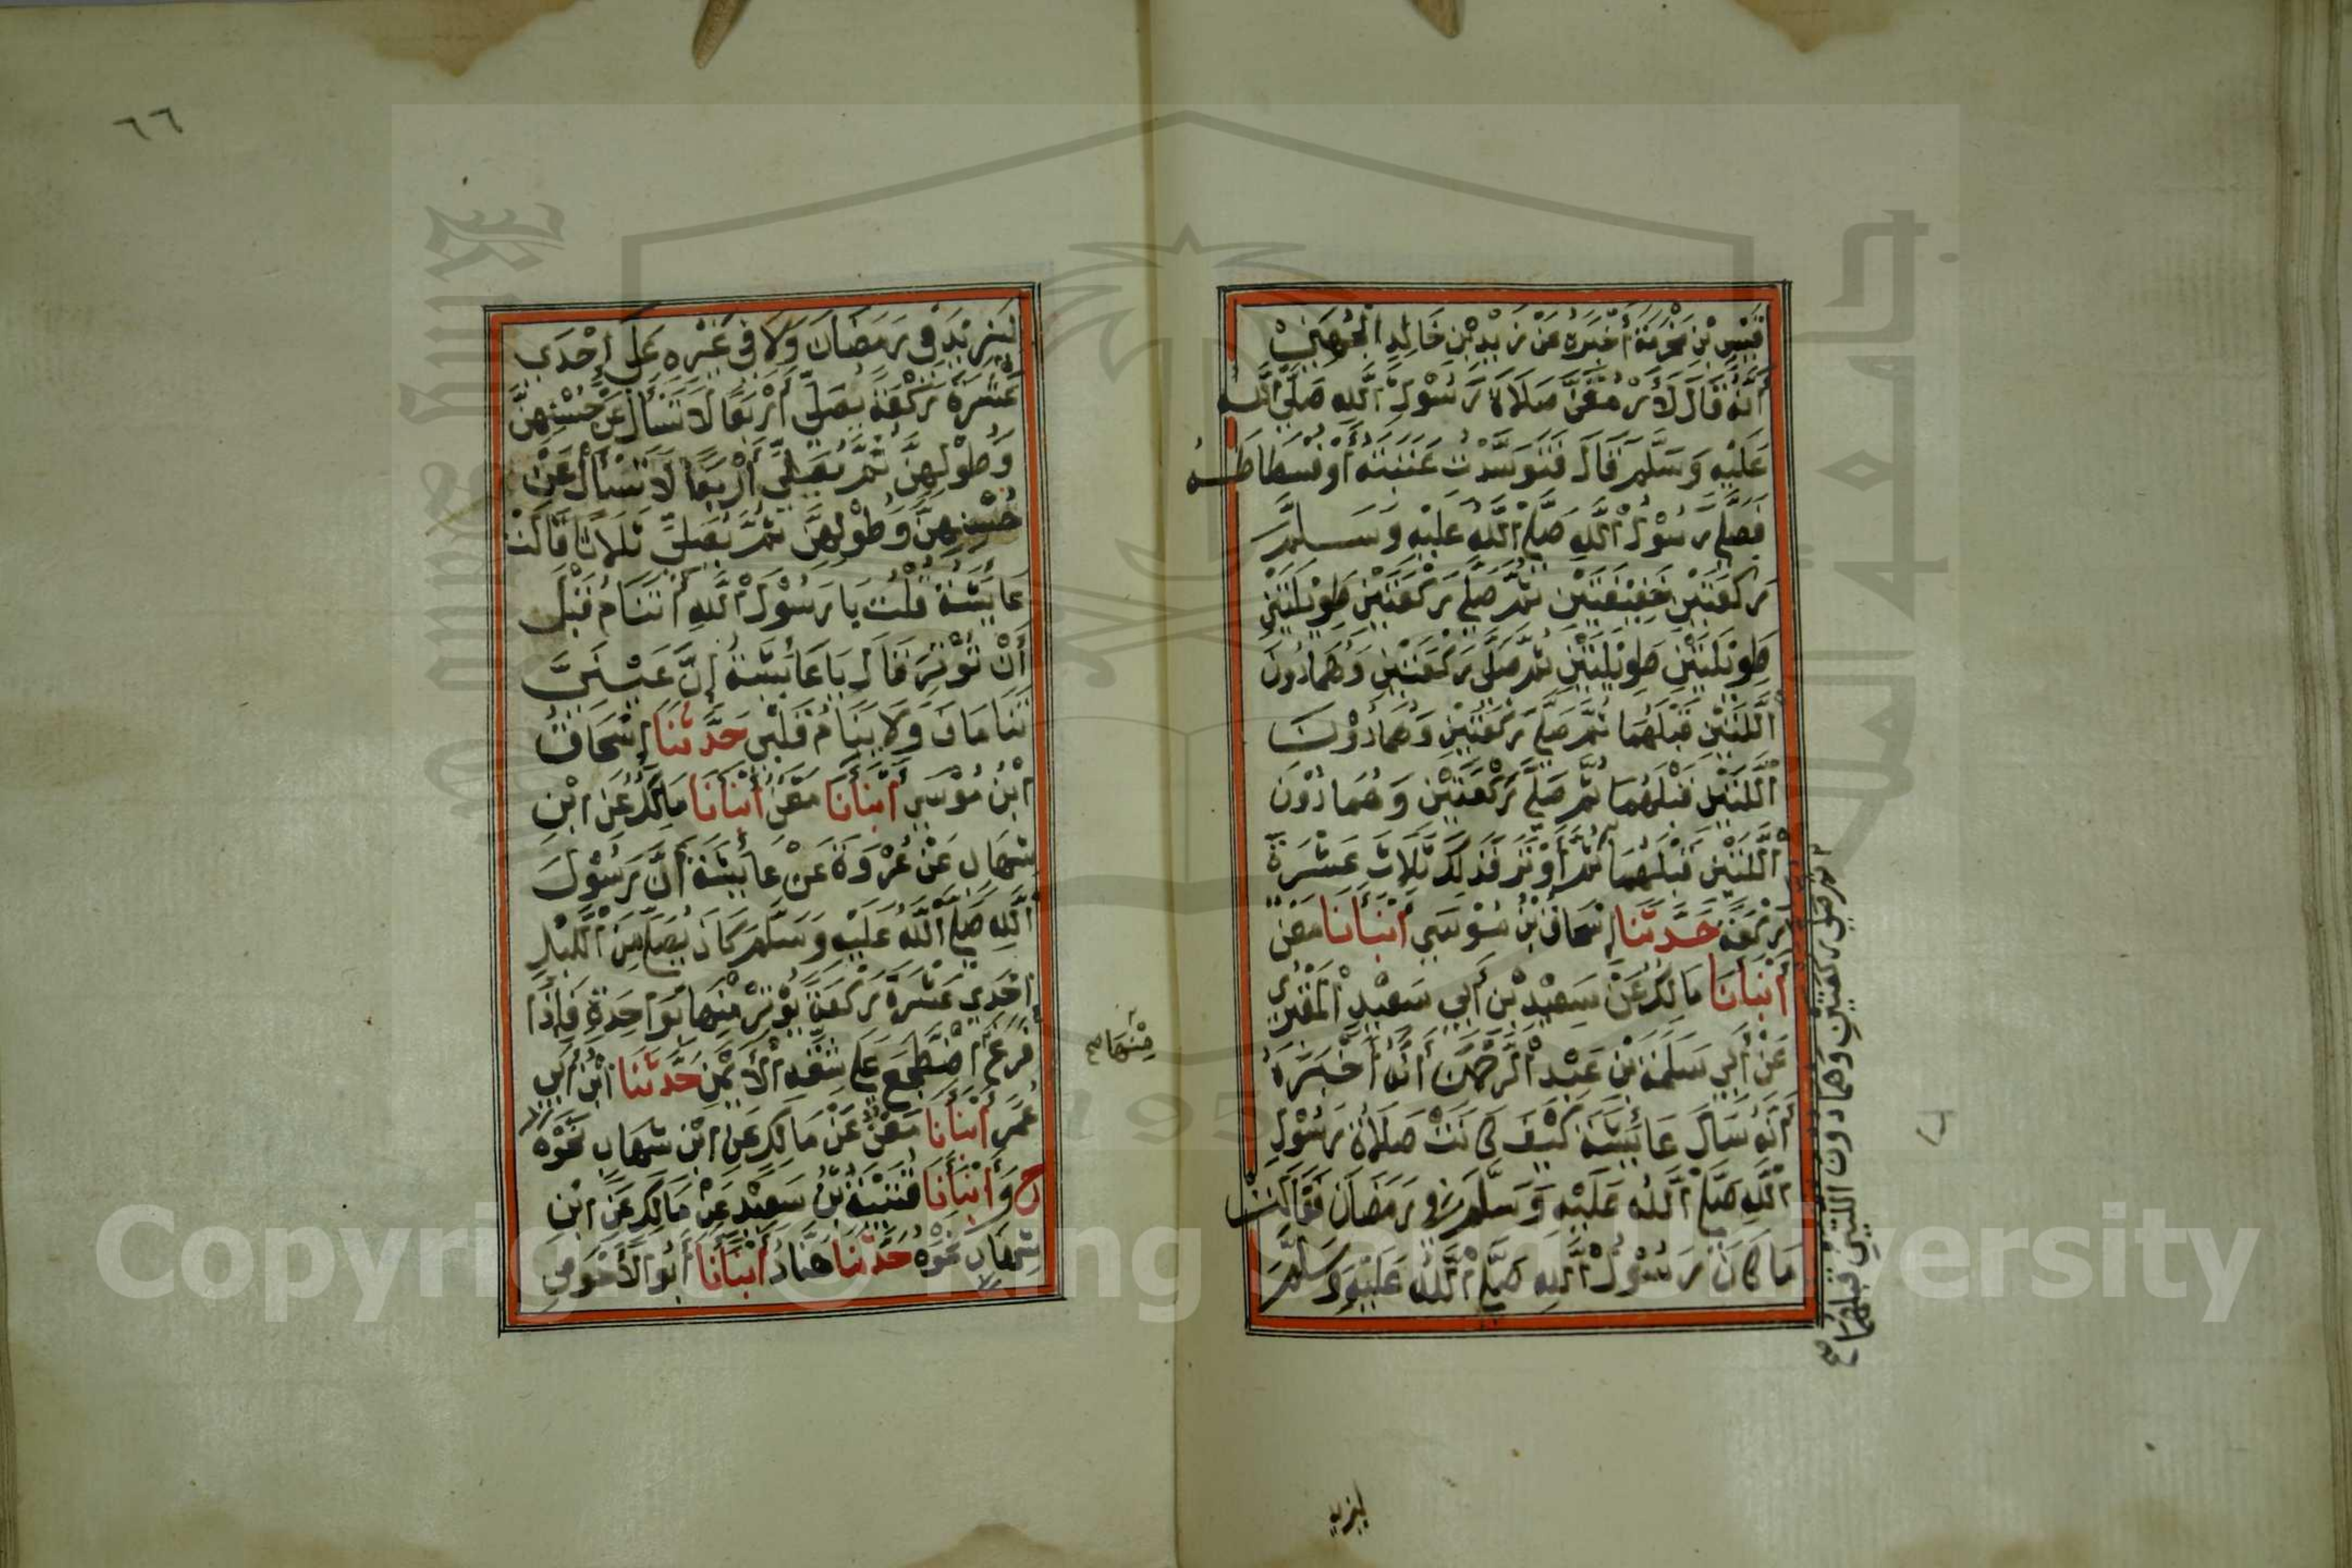 قَيْسِ بْنِ مَخْرَمَةَ أَخْبَرَهُ عَنْ زَيْدِ بْنِ خَالِدِ الْجُهَنِيِّ
أَنَّهُ قَالَ لَأَرْمُقَنَّ صَلَاةَ رَسُوْلِ اللَّهِ صَلَّي اللَّه
عَلَيْهِ وَسَلَّمَ قَالَ فَتَوَسَّدْتُ عَتَبَتَهُ أَوْ فُسْطَاطَهُ
فَصَلَّي رَسُوْلُ اللَّهِ صَلَّي اللَّهُ عَلَيْهِ وَسَلَّمَ
رَكْعَتَيْنِ خَفِيْفَتَيْنِ ثُمَّ صَلَّي رَكْعَتَيْنِ طَوِيْلَتَيْنِ
طَوِيْلَتَيْنِ طَوِيْلَتَيْنِ ثُمَّ صَلَّي رَكْعَتَيْنِ وَهُمَا دُونَ
اللَّتَيْنِ قَبْلَهُمَا ثُمَّ صَلَّي رَكْعَتَيْنِ وَهُمَا دُوْنَ
اللَّتَيْنِ قَبْلَهُمَا ثُمَّ صَلَّي رَكْعَتَيْنِ وَهُمَا دُوْنَ
اللَّتَيْنِ قَبْلَهُمَا ثُمَّ أَوْتَرَ فَذَلِكَ ثَلَاثَ عَشْرَةَ
رَكْعَةً حَدَّثَنَا إِسْحَاقُ بْنُ مُوْسَي أَنْبَأَنَا مَعْنٌ
أَنْبَأَنَا مَالِكٌ عَنْ سَعِيْدِ بْنِ أَبِي سَعِيْدٍ الْمَقْبُرِيِّ
عَنْ أَبِي سَلَمَةَ بْنِ عَبْدِ الرَّحْمَنِ أَنَّهُ أَخْبَرَهُ
أَنَّهُ سَأَلَ عَائِشَةَ كَيْفَ كَانَتْ صَلَاةُ رَسُوْلِ
اللَّهِ صَلَّي اللَّهُ عَلَيْهِ وَسَلَّمَ فِي رَمَضَانَ فَقَالَتْ
مَا كَانَ رَسُوْلُ اللَّهِ صَلَّي اللَّهُ عَلَيْهِ وَسَلَّمَ
ثم صلي ركعتين وهما دون اللتين قبلهما صح
ليزيد
٦٦
لِيَزِيْدَ فِي رَمَضَانَ وَلَا فِي غَيْرِهِ عَلَي إِحْدَي
عَشْرَةَ رَكْعَةً يُصَلِّي أَرْبَعًا لَا تَسْأَلْ عَنْ حُسْنِهِنَّ
وَطُوْلِهِنَّ ثُمَّ يُصَلِّي أَرْبَعًا لَا تَسْأَلْ عَنْ
حُسْنِهِنَّ وَطُوْلِهِنَّ ثُمَّ يُصَلِّي ثَلَاثًا قَالَتْ
عَائِشَةُ قُلْتُ يَا رَسُوْلَ اللَّهِ أَتَنَامُ قَبْلَ
أَنْ تُوْتِرَ قَالَ يَا عَائِشَةُ إِنَّ عَيْنَيَّ
تَنَامَانِ وَلَا يَنَامُ قَلْبِي حَدَّثَنَا إِسْحَاقُ
ابْنُ مُوْسَي أَنْبَأَنَا مَعْنٌ أَنْبَأَنَا مَالِكٌ عَنِ ابْنِ
شِهَابٍ عَنْ عُرْوَةَ عَنْ عَائِشَةَ أَنَّ رَسُوْلَ
اللَّهِ صَلَّي اللَّهُ عَلَيْهِ وَسَلَّمَ كَانَ يُصَلِّي مِنَ اللَّيْلِ
إِحْدَي عَشْرَةَ رَكْعَةً يُوْتِرُ مِنْهَا بِوَاحِدَةٍ فَإِذَا
فَرَغَ اضْطَجَعَ عَلَي شِقِّهِ الْأَيْمَنِ حَدَّثَنَا ابْنُ أَبِي
عُمَرَ أَنْبَأَنَا مَعْنٌ عَنْ مَالِكٍ عَنِ ابْنِ شِهَابٍ نَحْوَهُ
ح وَأَنْبَأَنَا قُتَيْبَةُ بْنُ سَعِيْدٍ عَنْ مَالِكٍ عَنِ ابْنِ
شِهَابٍ نَحْوَهُ حَدَّثَنَا هَنَّادٌ أَنْبَأَنَا أَبُو الْأَحْوَصِ
مِنْهَا صح
Copyright © King Saud University